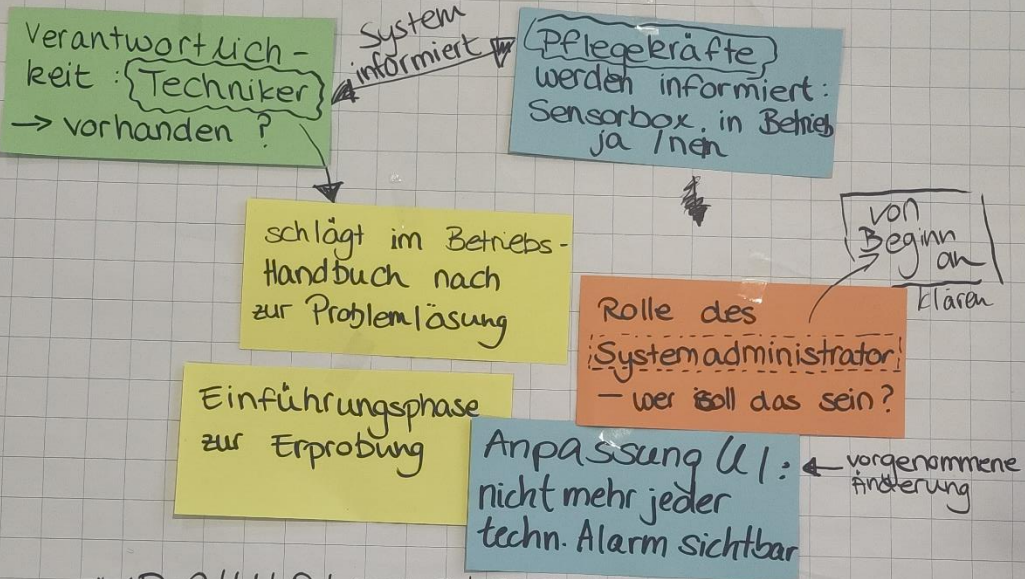 Verantwortlich-
keit: Techniker
→ vorhanden?
System
informiert
Pflegekräfte
werden informiert:
Sensorbox in Betrieb
ja / nein
schlägt im Betriebs-
Handbuch nach
zur Problemlösung
von
Beginn
an
klären
Rolle des
Systemadministrator
- wer soll das sein?
Einführungsphase
zur Erprobung
Anpassung UI:
nicht mehr jeder
techn. Alarm sichtbar
← vorgenommene
Änderung